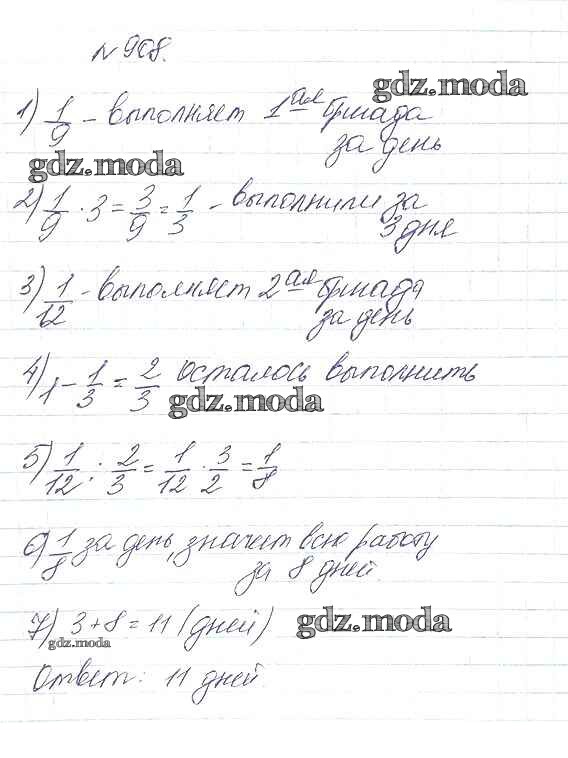 №908.
gdz.moda
1) 1/9 - выполняет 1ая бригада
за день
gdz.moda
2) 1/9 · 3 = 3/9 = 1/3 - выполнили за
3 дня
3) 1/12 - выполняет 2ая бригада
за день
4) 1 - 1/3 = 2/3 осталось выполнить
gdz.moda
5) 1/12 : 2/3 = 1/12 · 3/2 = 1/8
6) 1/8 за день, значит всю работу
за 8 дней.
7) 3+8 = 11 (дней)
gdz.moda
gdz.moda
Ответ: 11 дней